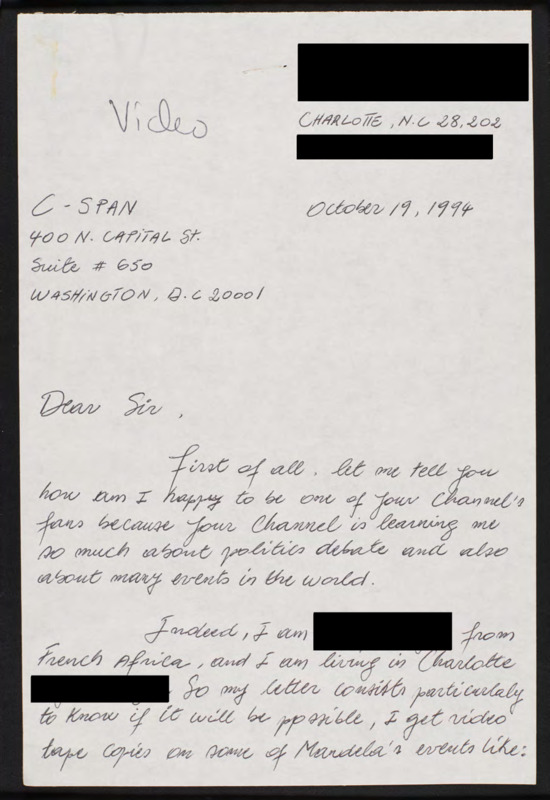 Video
CHARLOTTE, N.C 28,202
C-SPAN
October 19, 1994
400 N. CAPITAL St.
Suite # 650
WASHINGTON, D.C 20001
Dear Sir,
First of all. let me tell you
how am I happy to be one of your Channel's
fans because your Channel is learning me
so much about politics debate and also
about many events in the world.
Indeed, I am from
French Africa, and I am living in Charlotte
So my letter consists particularly
to know if it will be possible, I get video
tape copies on some of Mandela's events like: